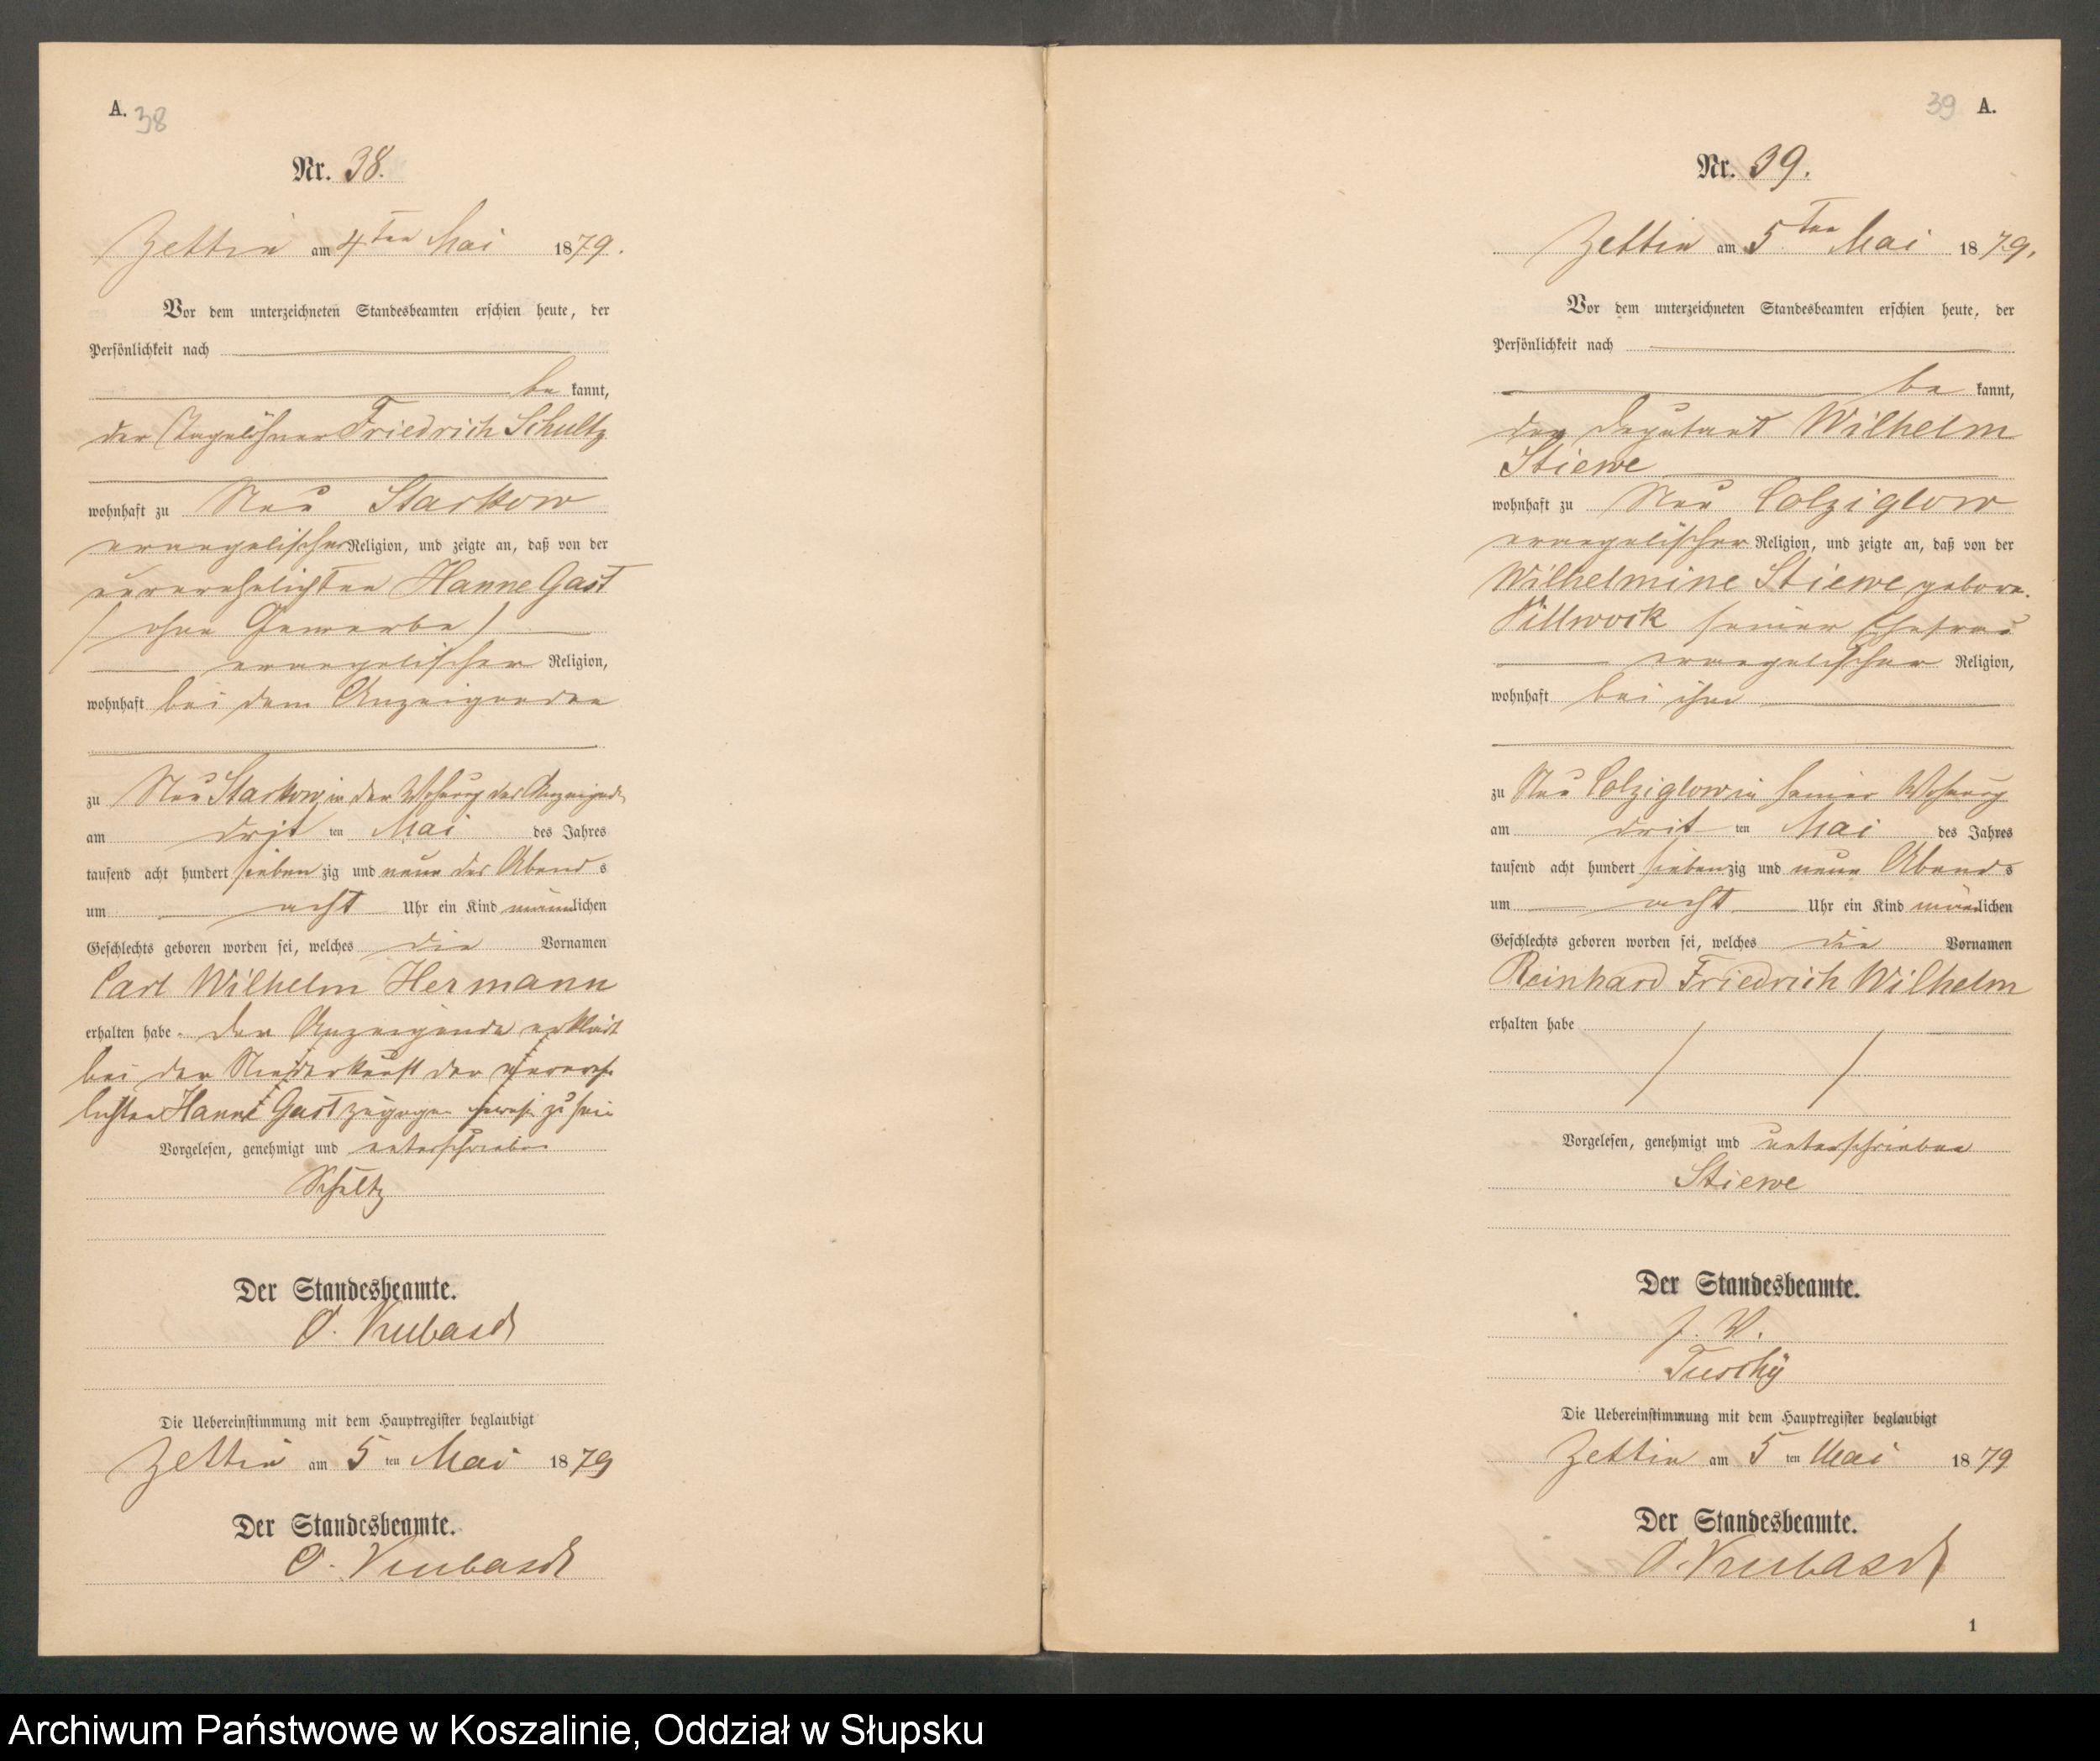 A. 38
Nr. 38.
Zettin am 4ten Mai 1879.
Vor dem unterzeichneten Standesbeamten erschien heute, der
Persönlichkeit nach
be kannt,
der Tagelöhner Friedrich Schultz
wohnhaft zu Neu Starkow
evangelischer Religion, und zeigte an, daß von der
unverehelichten Hanne Gast
/ ohne Gewerbe /
evangelischer Religion,
wohnhaft bei dem Anzeigenden
zu Neu Starkow in der Wohnung des Anzeigend
am drit ten Mai des Jahres
tausend acht hundert sieben zig und neun des Abend s
um acht Uhr ein Kind männlichen
Geschlechts geboren worden sei, welches die Vornamen
Carl Wilhelm Hermann
erhalten habe. Der Anzeigende erklärt
bei der Niederkunft der unvereh
lichten Hanne Gast zugegen gewesen zu sein
Vorgelesen, genehmigt und unterschrieben
Schultz
Der Standesbeamte.
O.
Die Uebereinstimmung mit dem Hauptregister beglaubigt
Zettin am 5 ten Mai 1879
Der Standesbeamte.
O.
39 A.
Nr. 39.
Zettin am 5ten Mai 1879.
Vor dem unterzeichneten Standesbeamten erschien heute, der
Persönlichkeit nach
be kannt,
der Deputant Wilhelm
Stiewe
wohnhaft zu Neu Colziglow
evangelischer Religion, und zeigte an, daß von der
Wilhelmine Stiewe gebore.
Villwock seiner Ehefrau
evangelischer Religion,
wohnhaft bei ihm
zu Neu Colziglow in seiner Wohnung
am drit ten Mai des Jahres
tausend acht hundert siebenzig und neun Abend s
um acht Uhr ein Kind männlichen
Geschlechts geboren worden sei, welches die Vornamen
Reinhard Friedrich Wilhelm
erhalten habe
Vorgelesen, genehmigt und unterschrieben
Stiewe
Der Standesbeamte.
J. V.
Die Uebereinstimmung mit dem Hauptregister beglaubigt
Zettin am 5 ten Mai 1879
Der Standesbeamte.
O.
1
Archiwum Państwowe w Koszalinie, Oddział w Słupsku